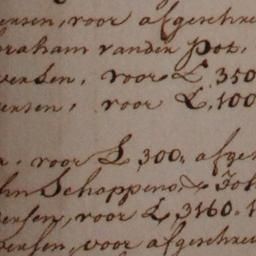 ensen, voor afgeschre
braham vanden Pot,
vensen, voor £ 350
ensen, voor £, 100
r, voor £ 300, afge
hn Schappeno, & Joh
vensen, voor £, 3160. 1
pensen, voor afgeschre